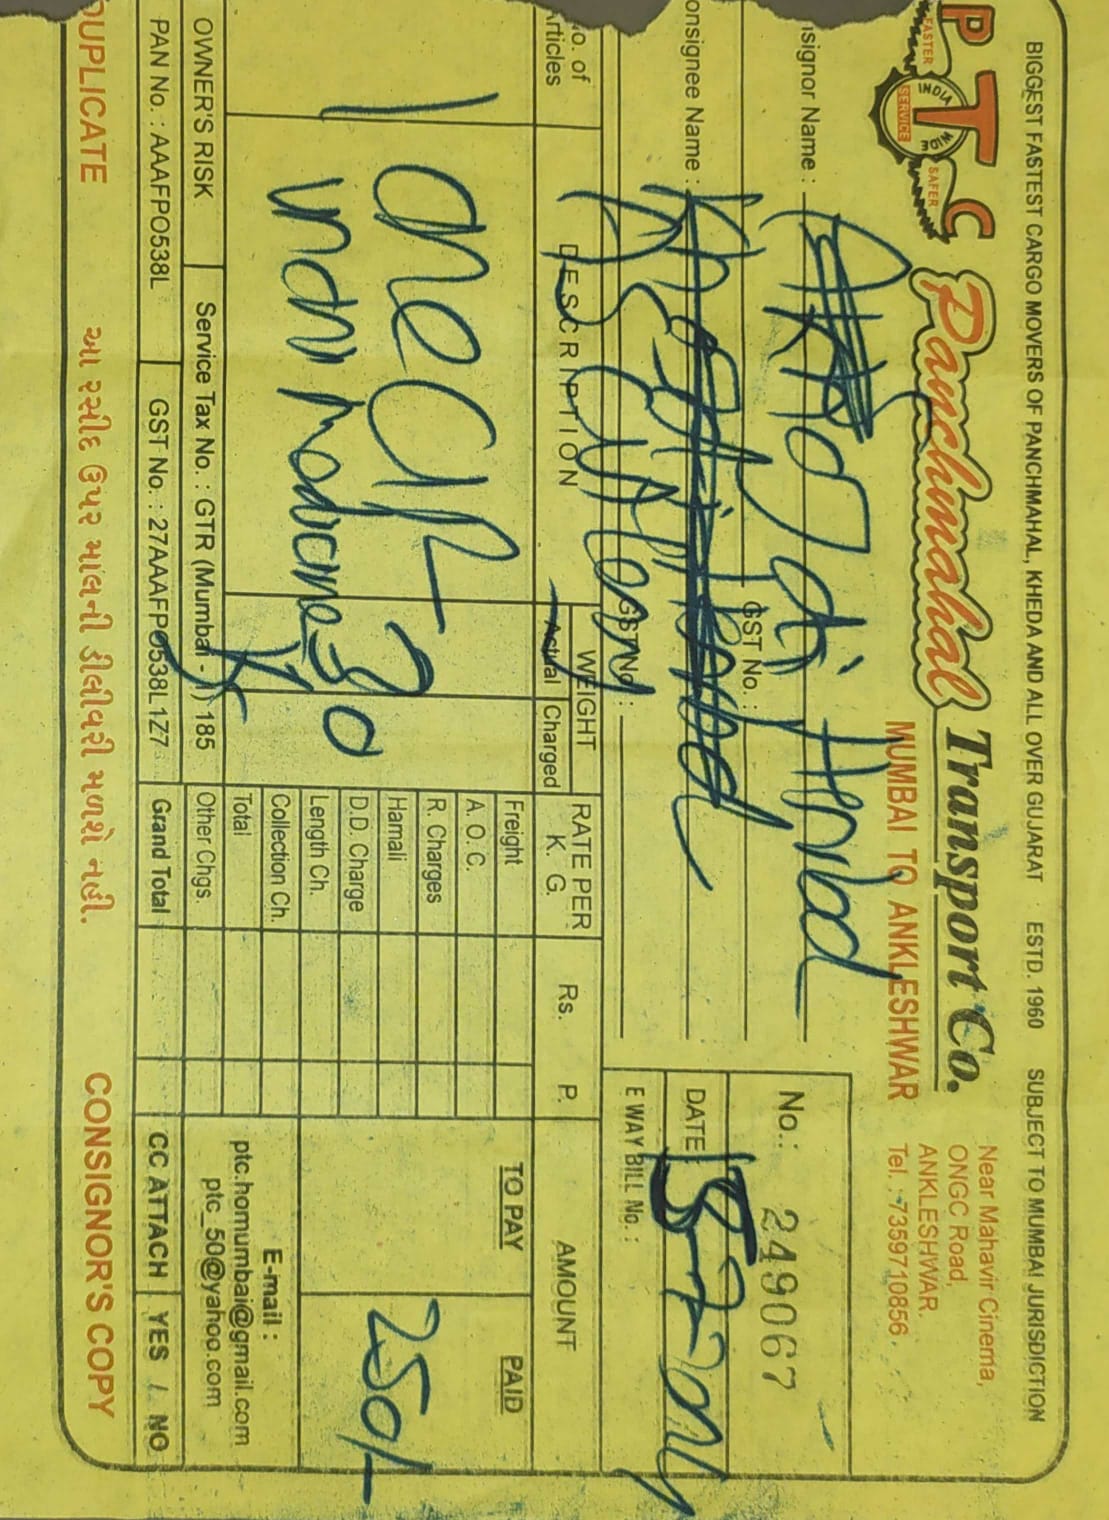 BIGGEST FASTEST CARGO MOVERS OF PANCHMAHAL, KHEDA AND ALL OVER GUJARAT ESTD. 1960 SUBJECT TO MUMBAI JURISDICTION
PTC
FASTER SAFER
INDIA WIDE
SERVICE
Panchmahal Transport Co.
MUMBAI TO ANKLESHWAR
Near Mahavir Cinema,
ONGC Road,
ANKLESHWAR.
Tel. : 7359710856
signor Name :
GST No. :
onsignee Name :
GST No. :
No.: 249067
DATE
E WAY BILL No. :
No. of Articles
DESCRIPTION
WEIGHT
Actual Charged
RATE PER K. G.
Rs. P.
AMOUNT
TO PAY PAID
1
One
30
250/-
Freight
A. O. C.
R. Charges
Hamali
D.D. Charge
Length Ch.
Collection Ch.
Total
Other Chgs.
Grand Total
E-mail :
ptc.homumbai@gmail.com
ptc_50@yahoo.com
OWNER'S RISK Service Tax No. : GTR (Mumbai - I) 185
PAN No. : AAAFPO538L GST No. : 27AAAFPO538L1Z7
CC ATTACH YES / NO
DUPLICATE આ રસીદ ઉપર માલની ડીલીવરી મળશે નહી. CONSIGNOR'S COPY